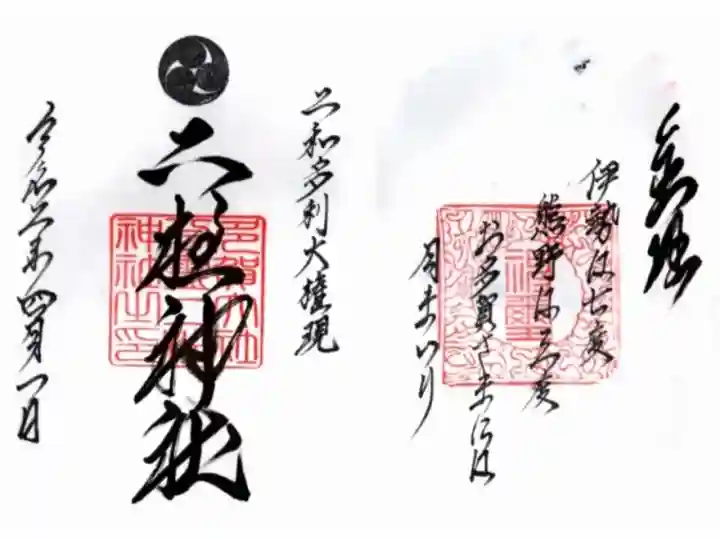 奉拝
伊勢は七度
熊野は三度
お多賀さまには
月まいり
仁和多利大権現
二柱神社
令和三年四月一日